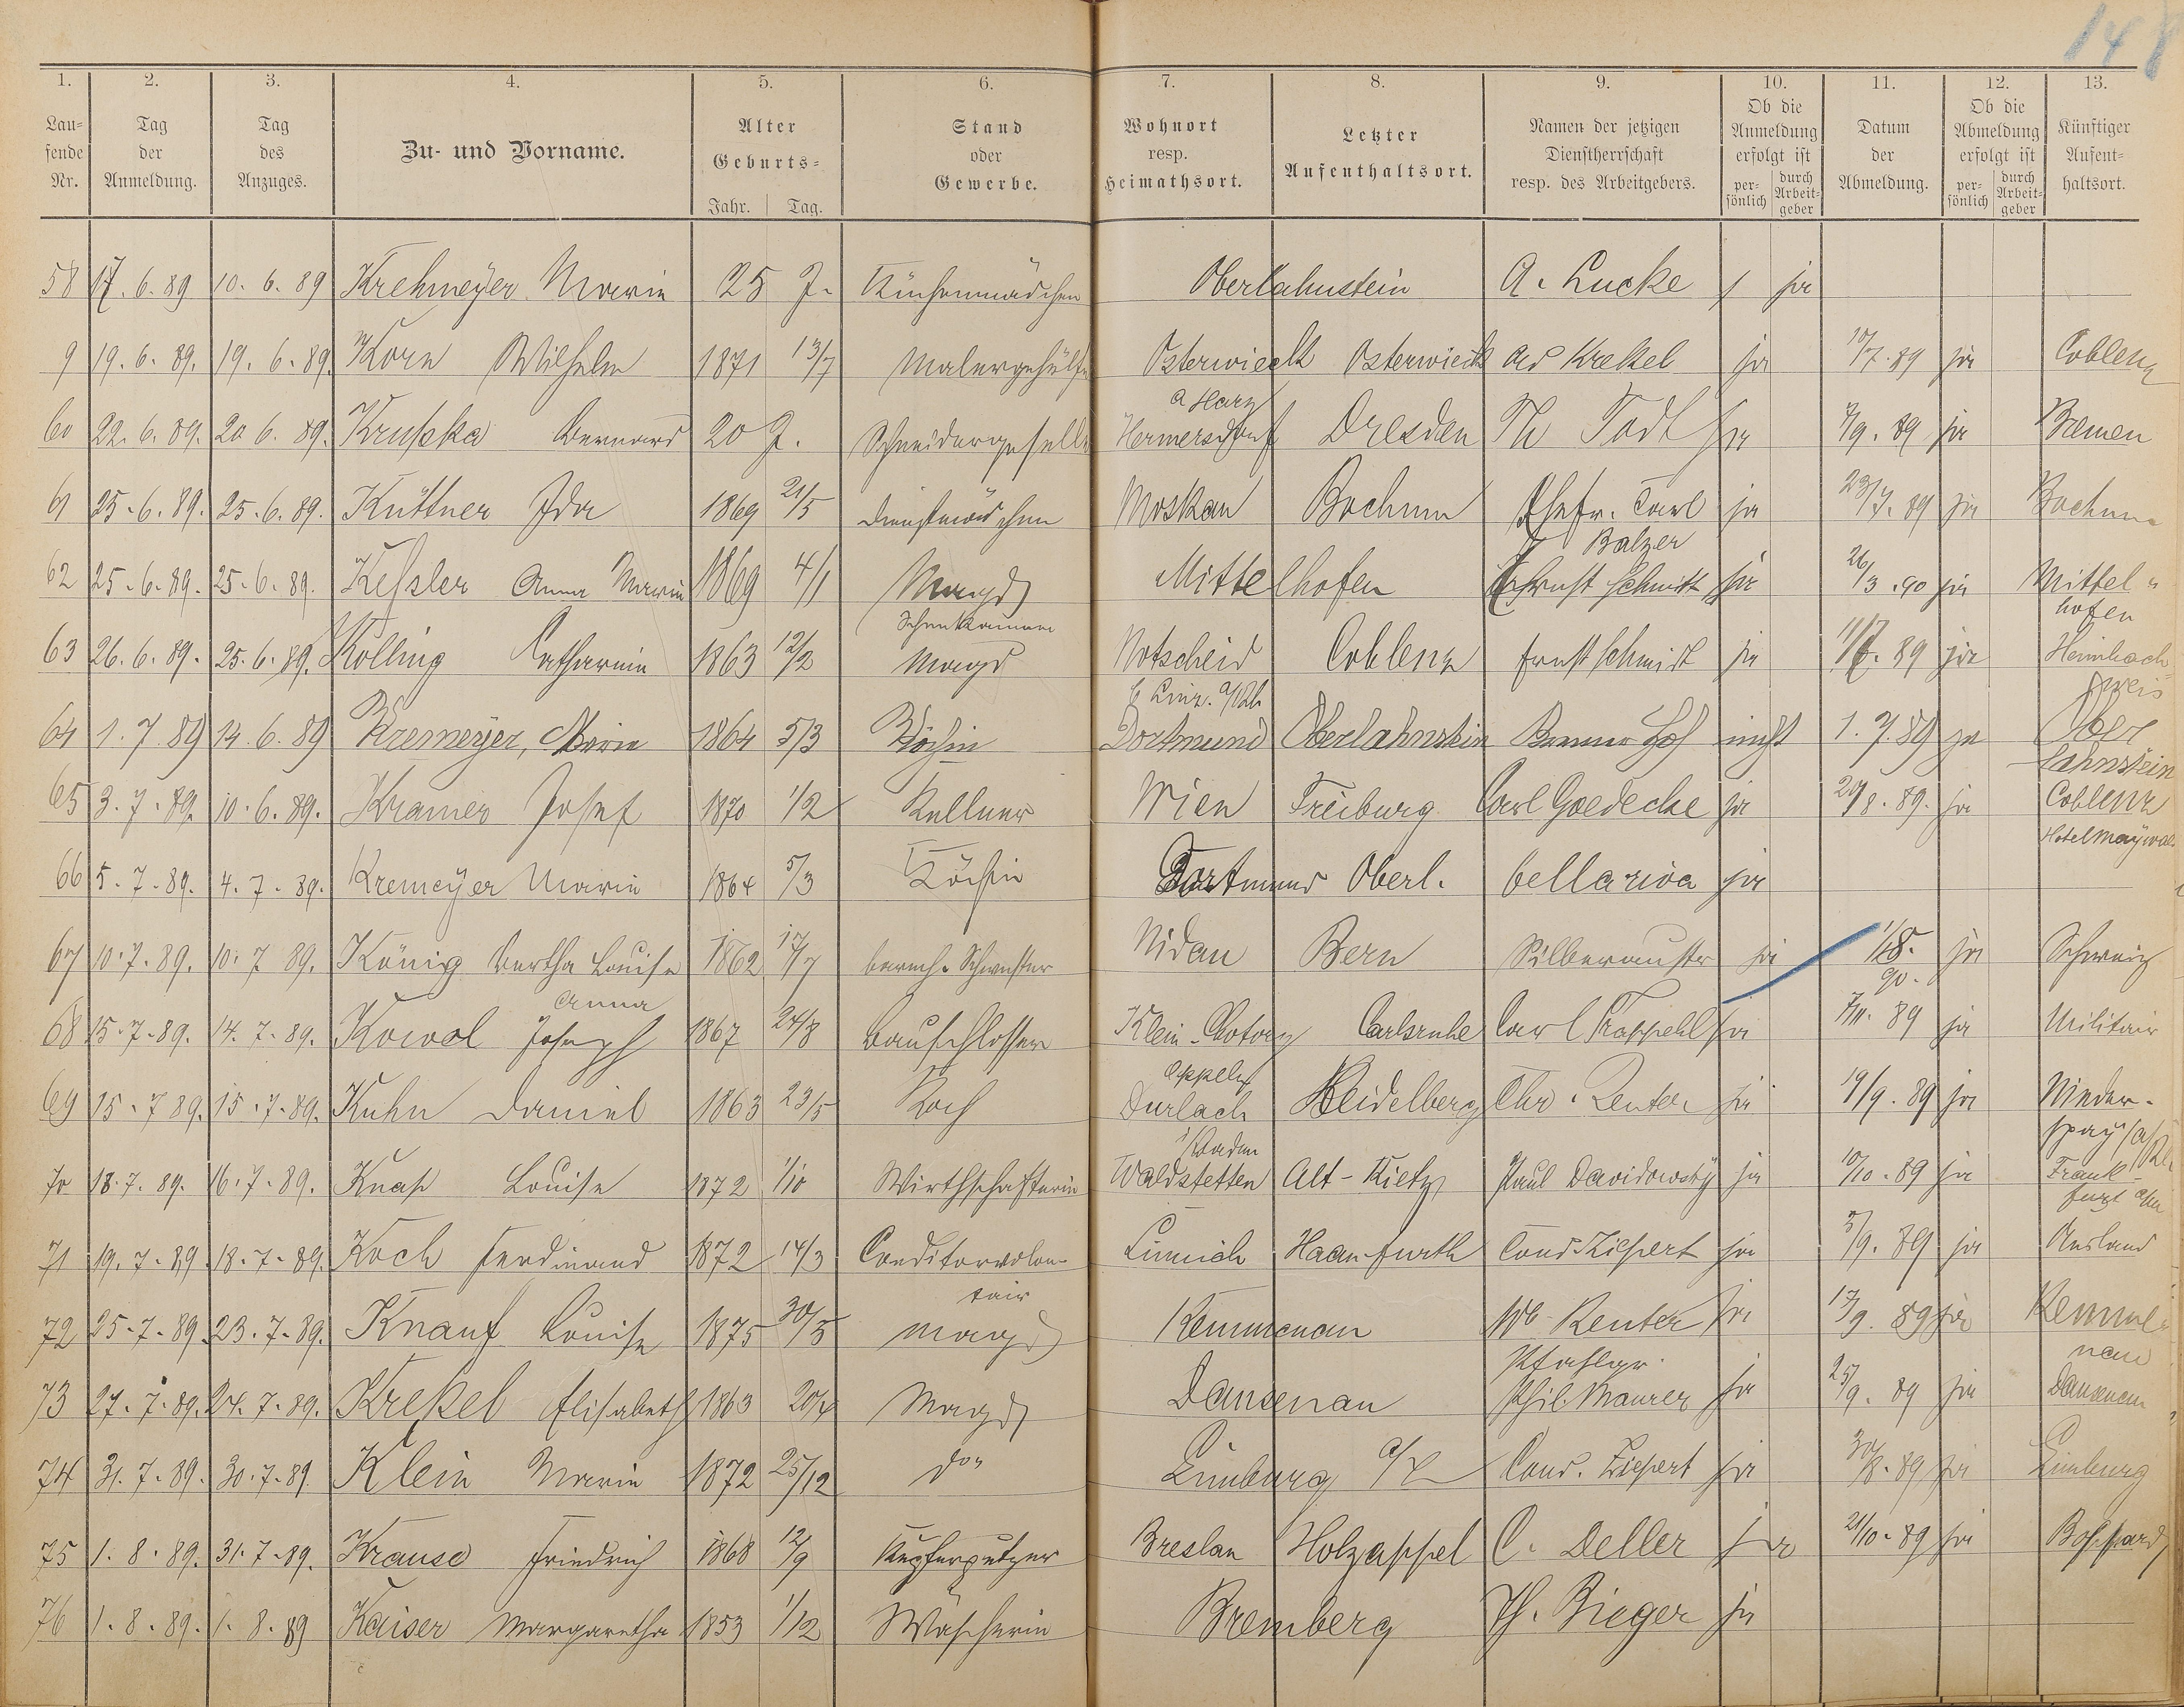 148
1. 2. 3. 4. 5. 6. 7. 8. 9. 10. 11. 12. 13.
Lau=
fende
Nr.
Tag
der
Anmeldung.
Tag
des
Anzuges.
Zu- und Vorname.
Alter
Geburts=
Jahr. Tag.
Stand
oder
Gewerbe.
Wohnort
resp.
Heimathsort.
Letzter
Aufenthaltsort.
Namen der jetzigen
Dienstherrschaft
resp. des Arbeitgebers.
Ob die
Anmeldung
erfolgt ist
per-
sönlich
durch
Arbeit-
geber
Datum
der
Abmeldung.
Ob die
Abmeldung
erfolgt ist
per-
sönlich
durch
Arbeit-
geber
Künftiger
Aufent-
haltsort.
58 17. 6. 89 10. 6. 89 Krehmeyer Marie 25 J. Küchenmädchen Oberlahnstein A. Lucke ja
9 19. 6. 89. 19. 6. 89. Korn Wilhelm 1871 13/7 Malergehülfe Osterwieck Osterwieck Ad Krekel ja 10/7. 89 ja Coblenz
a Harz
60 22. 6. 89. 20 6. 89. Kruska Bernard 20 J. Schneidergeselle Hermersdorf Dresden Th Todt ja 7/9. 89 ja Bremen
61 25. 6. 89. 25. 6. 89. Küttner Ida 1869 21/5 Dienstmädchen Moskau Bochum Ehefr. Carl ja 23/7. 89 ja Bochum
Balzer
62 25. 6. 89. 25. 6. 89. Kessler Anna Marie 1869 4/1 Magd Mittelhofen Ernst Schmitt ja 26/3. 90 ja Mittel
hofen
63 26. 6. 89. 25. 6. 89. Kölling Catharina 1863 12/2 Magd Notscheid Coblenz Ernst Schmidt ja 11/7. 89 ja Heimbach
b Linz. a/Rh
64 1. 7. 89 14. 6. 89 Kremeyer, Marie 1864 5/3 Köchin Dortmund Oberlahnstein nicht 1. 7. 89 ja Ober
lahnstein
65 3. 7. 89. 10. 6. 89. Kramer Josef 1870 1/2 Kellner Wien Freiburg Carl Goedecke ja 20/8. 89. ja Coblenz
Hotel
66 5. 7. 89. 4. 7. 89. Kremeyer Marie 1864 5/3 Köchin Dortmund Oberl. bellariva ja
67 10. 7. 89. 10. 7 89. König Bertha Louise 1862 17/7 barmh. Schwester Nidau Bern ja 1/8. ja Schweiz
Anna 90.
68 15. 7. 89. 14. 7. 89. Kowol Joseph 1867 24/8 Bauschlosser Klein Carlsruhe Carl ja 7/11. 89 ja Militair
Oppeln
69 15. 7 89. 15. 7. 89. Kuhn Daniel 1863 23/5 Koch Durlach Heidelberg Chr. Reuter ja 19/9. 89 ja Nieder-
i/Baden spay a/Rh
70 18. 7. 89. 16. 7. 89. Louise 1872 1/10 Wirthschafterin Waldstetten Alt-Kietz Paul Davidowsky ja 10/10. 89 ja Frank-
furt a/M
71 19. 7. 89 18. 7. 89. Koch Ferdinand 1872 14/3 Conditorvolon-
tair Haan Cond Ziepert ja 5/9. 89 ja Ausland
72 25. 7. 89 23. 7. 89. Knauf Louise 1875 30/5 Magd Kemmenau Reuter ja 17/9. 89 ja Kemme
nau
73 27. 7. 89. 24. 7. 89. Krekel Elisabeth 1863 20/4 Magd Dausenau Phil. Maurer ja 25/9. 89 ja Dausenau
74 31. 7. 89. 30. 7. 89 Klein Marie 1872 25/12 do Limburg a/L Cond. Ziepert ja 30/8. 89 ja Limburg
75 1. 8. 89. 31. 7. 89. Krause Friedrich 1868 12/9 Kupferputzer Breslau Holzappel C. Deller ja 21/10. 89 ja Boppard
76 1. 8. 89. 1. 8. 89 Kaiser Margaretha 1853 1/12 Wäscherin Bremberg Th. Bieger ja